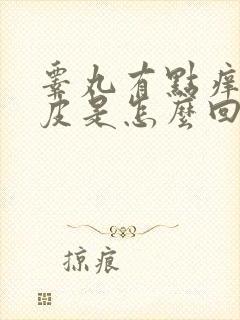 睪丸有點癢
皮是怎麼回
掠痕